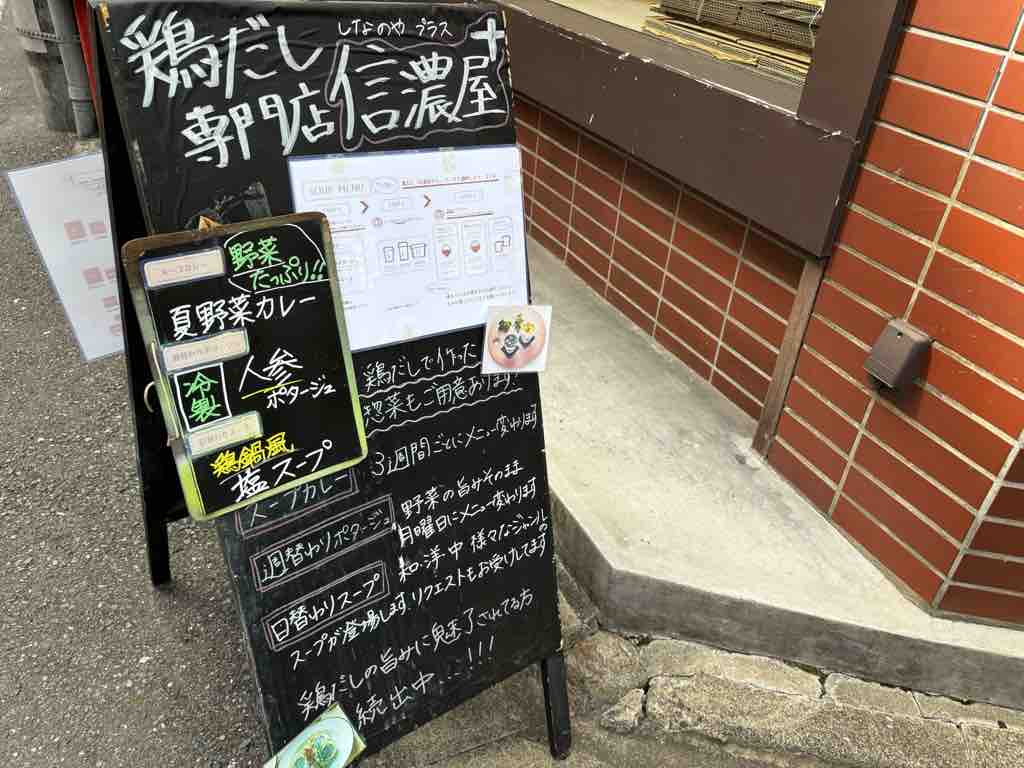 しなのや プラス
鶏だし
専門店 信濃屋+
SOUP MENU
スープカレー
野菜
たっぷり!!
夏野菜カレー
冷製
人参
ポタージュ
鶏鍋風
塩スープ
鶏だしで作った
惣菜もご用意あります!
スープカレー
3週間ごとにメニュー変わります
週替わりポタージュ
野菜の旨みそのまま
月曜日にメニュー変わります
日替わりスープ
和・洋・中 様々なジャンルの
スープが登場します。リクエストもお受けしてます。
鶏だしの旨みに魅了されてる方
続出中...!!!